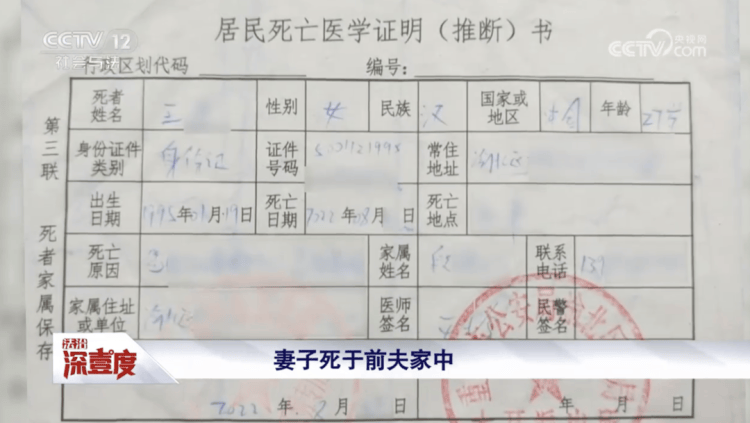 CCTV 12
社会与法
央视网
CCTV.com
居民死亡医学证明（推断）书
行政区划代码 编号：
第三联 死者家属保存
死者姓名 王 性别 女 民族 汉 国家或地区 中国 年龄 27岁
身份证件类别 身份证 证件号码 常住地址 渝北区
出生日期 1995年01月19日 死亡日期 2022年08月 日 死亡地点
死亡原因 家属姓名 联系电话 137
家属住址或单位 渝北区 医师签名 民警签名
法治深壹度
妻子死于前夫家中
2022年8月 日 年 月 日